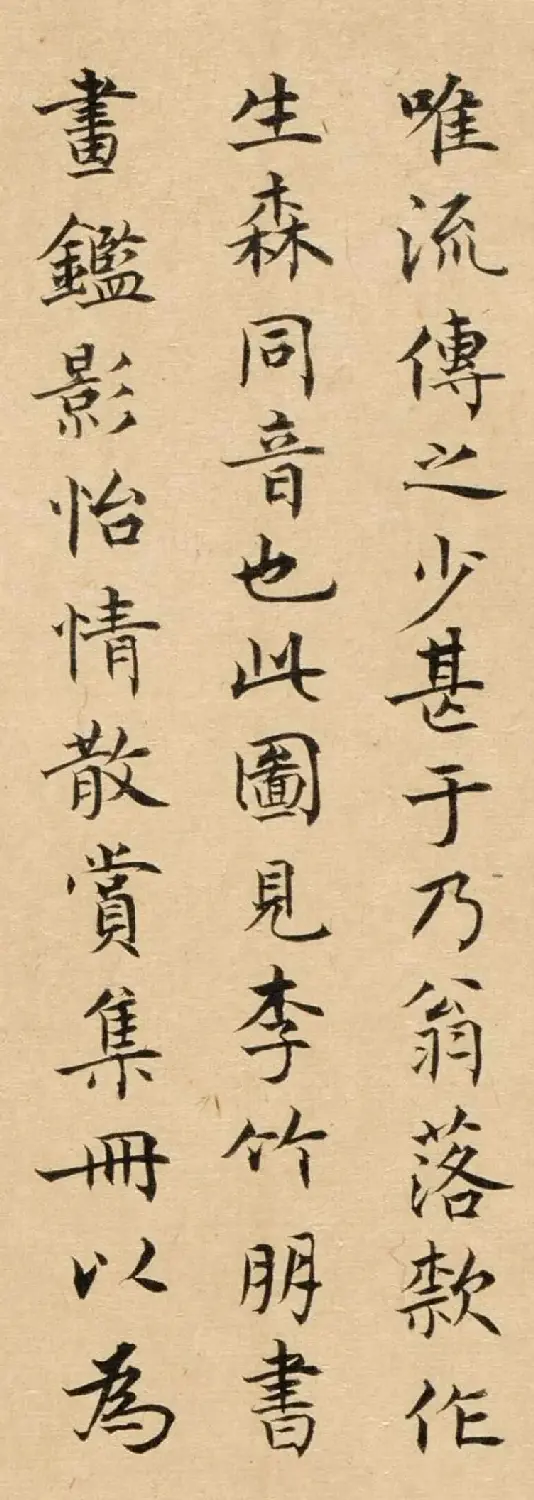 唯流傳之少甚于乃翁落款作
生森同音也此圖見李竹朋書
畫鑑影怡情散賞集冊以為